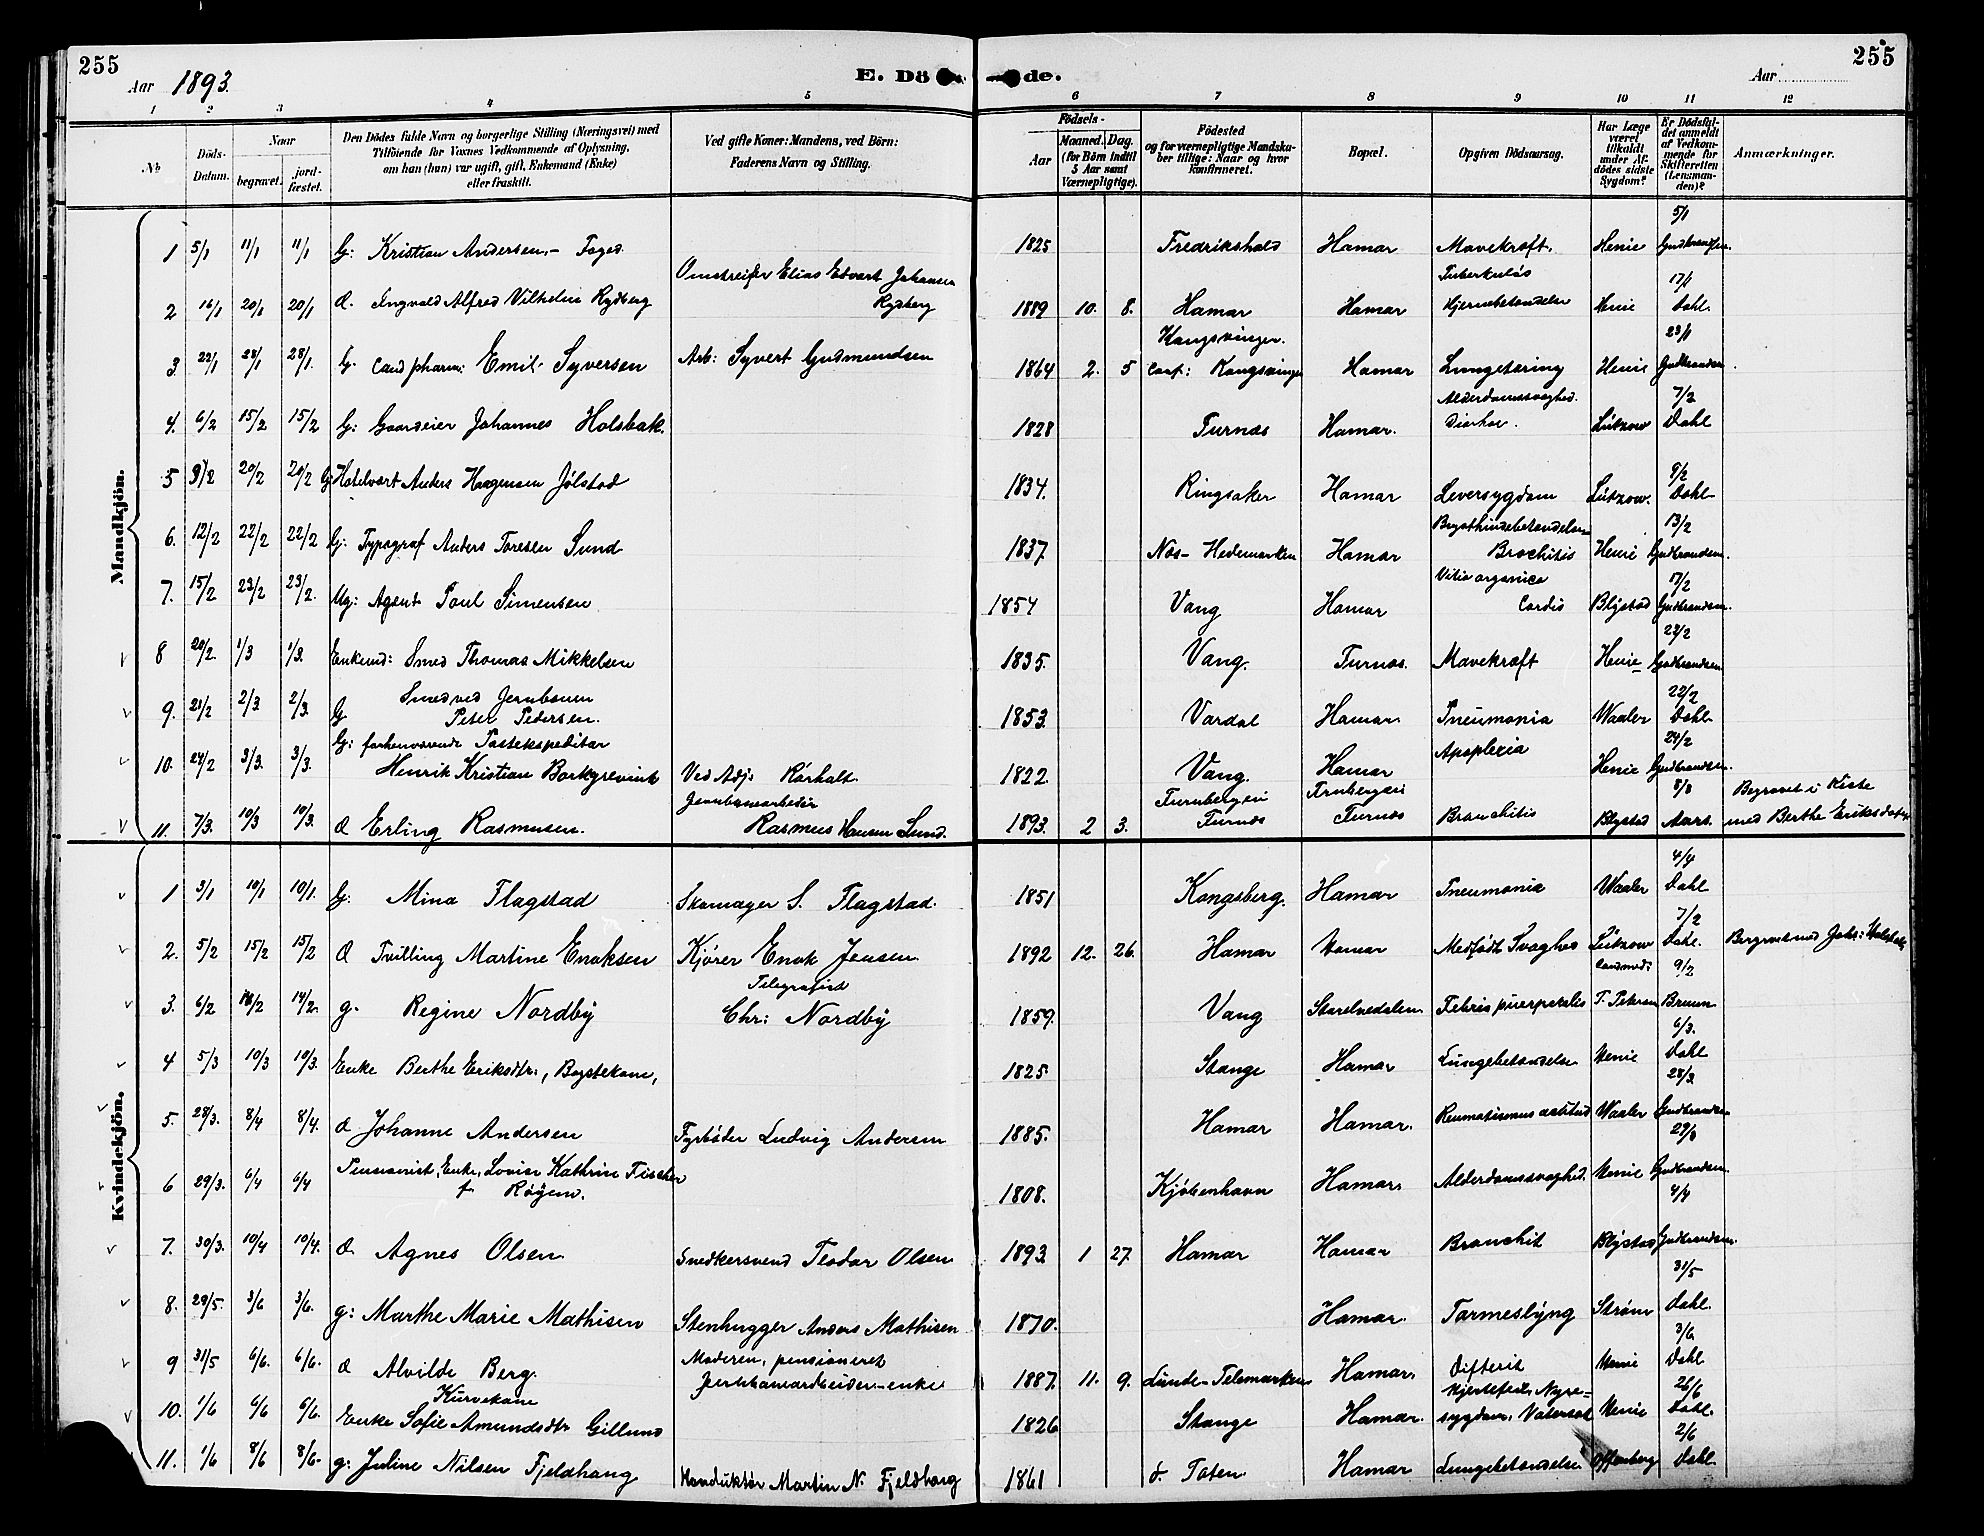 255
255
Aar 1893.
E. Dö de.
Aar
1 2 3 4 5 6 7 8 9 10 11 12
No
Döds-Datum.
Naar
begravet.
jord-fæstet.
Den Dödes fulde Navn og borgerlige Stilling (Næringsvei) med
Tilföiende for Voxnes Vedkommende af Oplysning,
om han (hun) var ugift, gift, Enkemand (Enke)
eller fraskilt.
Ved gifte Koner: Mandens, ved Börn:
Faderens Navn og Stilling.
Födsels-
Aar
Maaned. Dag.
(for Börn indtil
5 Aar samt
Værnepligtige).
Födested
og for værnepligtige Mandska-
ber tillige: Naar og hvor
konfirmeret.
Bopæl.
Opgiven Dödsaarsag.
Har Læge
været
tilkaldt
under Af-
dödes sidste
Sygdom?
Er Dödsfal-
det anmeldt
af Vedkom-
mende for
Skifteretten
(Lensman-
den)?
Anmærkninger.
Mandkjön.
1 5/1 11/1 11/1 G: Kristian Andersen,- Foged 1825 Fredrikshald Hamar Mavekræft. Henie 5/1 Gudbrandsen
2 16/1 20/1 20/1 d. Ingvald Alfred Vilhelm Rydberg Omstreifer Elias Edvart Johansen Rydberg 1889 10. 8. Hamar Hamar Tuberkuløs Hjernebetændelse Henie 17/1 Dahl.
3. 22/1 28/1 28/1. G. Cand pharm: Emil Syversen Arb: Syvert Gudmundsen 1864 2. 5 Kongsvinger. Conf: Kongsvinger Hamar Lungetæring Henie 23/1 Gudbrandsen
4. 6/2 15/2 15/2 G: Gaardeier Johannes Holsbak. 1828 Furnæs Hamar. Alderdomssvaghed. Diarhoe. Lützow 7/2 Dahl
5 9/2 20/2 20/2 G: Hotelvært Anders Haagensen Jølstad 1834. Ringsaker Hamar Leversygdom Lützow. 9/2 Dahl
6. 12/2 22/2 22/2 G: Typograf Anders Toresen Sund 1837 Næs- Hedemarken Hamar Brysthindebetændelse Brochitis Henie 13/2 Gudbrandsen.
7. 15/2 23/2 23/2. Ug: Agent Poul Simensen 1854 Vang Hamar Vitia organica Cordis Blystad 17/2 Gudbrandsen.
8 20/2. 1/3 1/3. Enkemd: Smed Thomas Mikkelsen 1835. Vang. Furnæs. Mavekræft Henie 22/2 Gudbrandsen
9. 21/2 2/3. 2/3. G Smed ved Jernbanen Peter Pedersen. 1853. Vardal Hamar. Pneumonia Waaler 22/2 Dahl.
10. 24/2 3/3. 3/3. G: forhenværende Postekspeditør Henrik Kristian Borkgrevink Ved Adj. Rörholt. 1822. Vang. Hamar Apoplexia Henie 24/2 Gudbrandsen.
11. 7/3. 10/3 10/3. d Erling Rasmusen. Jernbanearbeider Rasmus Hansen Lund. 1893. 2 3. Furnbergeie Furnæs Furnbergeie Furnæs Bronchitis Blystad 8/3 Aars. Begravet i Kiste med Berthe Eriksdatter
Kvindekjön.
1 3/1 10/1 10/1. G: Mina Flagstad Skomager S. Flagstad. 1851 Kongsberg. Hamar Pneumonia Waaler 4/4 Dahl
2. 5/2 15/2 15/2 d Tvilling Martine Enoksen Kjører Enok Jensen 1892 12. 26. Hamar Hamar Medfødt Svaghed Lützow 7/2 Dahl. Begravet med Johs: Holsbak
3. 6/2 14/2 14/2. g. Regine Nordby Telegrafist Chr: Nordby 1859. Vang Storelvedalen Febris puerperalis Cand med: T. Petersen 9/2 Bruun
4 5/3 10/3 10/3. Enke Berthe Eriksdtr., Bøstekone, 1825. Stange Hamar Lungebetændelse Henie 6/3. Dahl
5. 28/3. 8/4 8/4. d Johanne Andersen Fyrbøder Ludvig Andersen 1885. Hamar Hamar. Reumatismus Waaler 28/3 Gudbrandsen
6 29/3. 6/4 6/4 Pensionist, Enke, Lovise Kathrine Fischer f Røyem. 1808. Kjöbenhavn Hamar. Alderdomssvaghed. Henie 29/3 Gudbrandsen.
7. 30/3. 10/4 10/4. d. Agnes Olsen Snedkersvend Teodor Olsen 1893 1 27. Hamar Hamar Bronchit Blystad 4/4 Gudbrandsen.
8. 29/5. 3/6 3/6. g: Marthe Marie Mathisen Stenhugger Anders Mathisen 1870. Hamar. Tarmeslyng Strøm 31/5 Dahl.
9 31/5 6/6. 6/6. d Alvilde Berg. Moderen, pensioneret Jernbanearbeider-enke 1887. 11. 9. Lunde- Telemarken Hamar. Difterit Henie 3/6 Dahl
10. 1/6 6/6 6/6. Enke Kurvekone Sofie Amundsdtr Gillund 1826 Stange Hamar. Hjertefeil, Nyre-sygdom, Vatersot Henie 26/6 Dahl.
11. 1/6 8/6 8/6. g: Juline Nilsen Fjeldhaug Konduktør Martin N. Fjeldhaug 1861 Ø. Toten. Hamar Lungebetændelse Offenberg 2/6 Dahl.